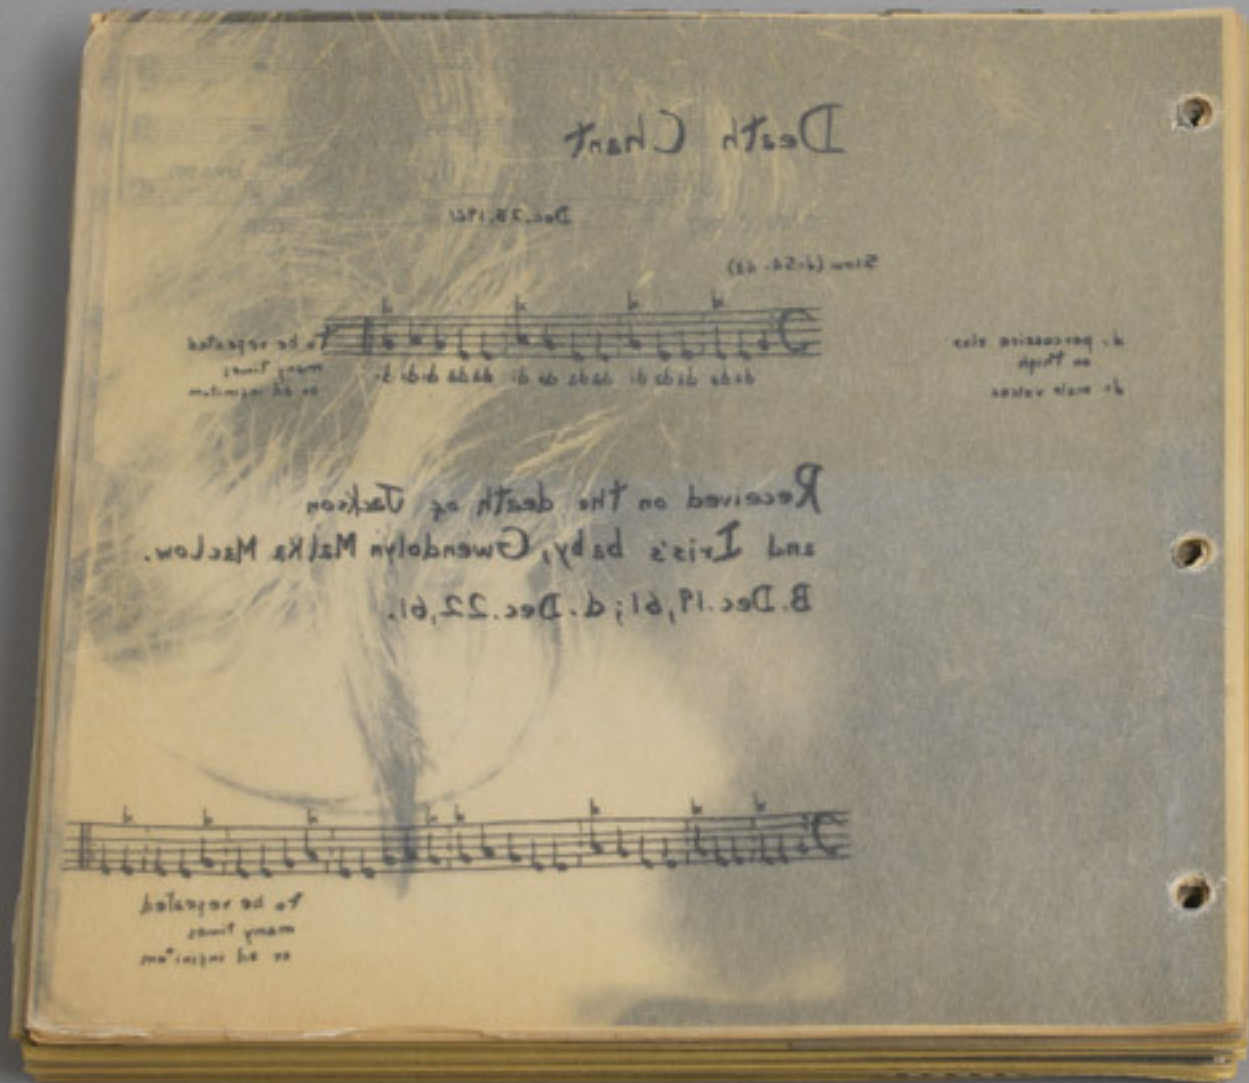 Death Chant
Dec. 25, 1961
Slow
percussive slap
on thigh
male voices
To be repeated
many times
or ad infinitum
Received on the death of Jackson
and Iris's baby, Gwendolyn Malka MacLow.
B. Dec. 19, 61; d. Dec. 22, 61.
To be repeated
many times
or ad infinitum